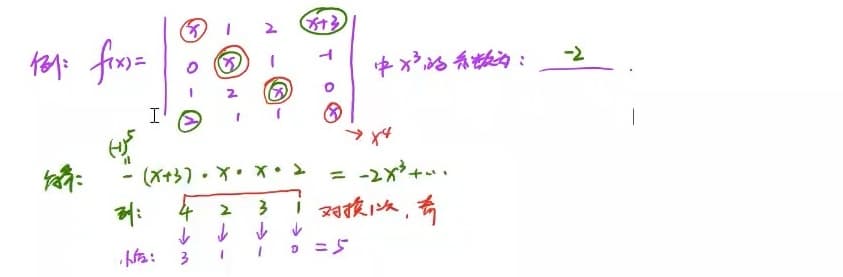 例: f(x)= | x 1 2 x+3 |
0 x 1 -1
1 2 x 0
2 1 1 x
中x³的系数为: -2 .
→ x⁴
(-1)⁵
"
答案: - (x+3)·x·x·2 = -2x³+…
列: 4 2 3 1 对换1次, 奇
↓ ↓ ↓ ↓
小后: 3 1 1 0 = 5